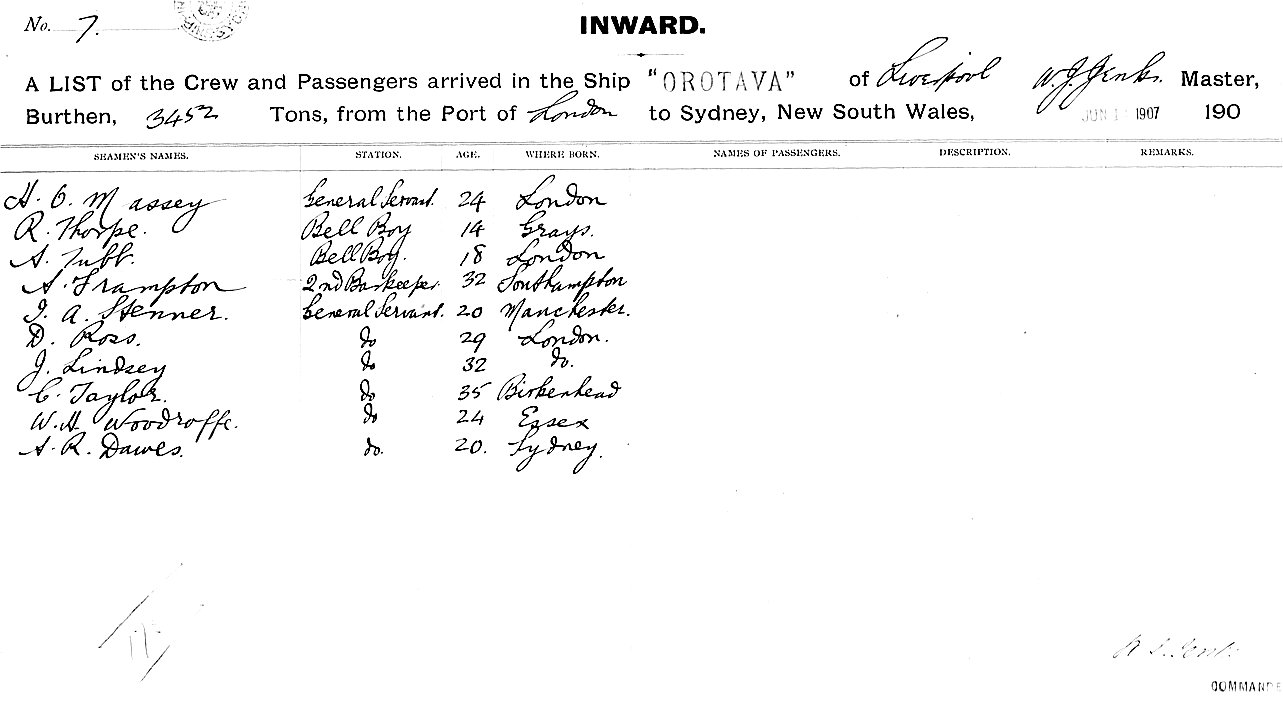 No. 7.
INWARD.
A LIST of the Crew and Passengers arrived in the Ship "OROTAVA" of Liverpool W. J. Jenks. Master,
Burthen, 3452 Tons, from the Port of London to Sydney, New South Wales, JUN 1907 190
SEAMEN'S NAMES. STATION. AGE. WHERE BORN. NAMES OF PASSENGERS. DESCRIPTION. REMARKS.
H. O. Massey General Servant. 24 London
R. Thorpe. Bell Boy 14 Grays.
A. Tubb. Bell Boy. 18 London
A. Frampton 2nd Barkeeper. 32 Southampton
J. A. Stenner. General Servant. 20 Manchester.
D. Ross. do 29 London.
J. Lindsey do 32 do.
C. Taylor. do 35 Birkenhead
W. H. Woodroffe. do 24 Essex
A. R. Dawes. do. 20. Sydney.
COMMANDE